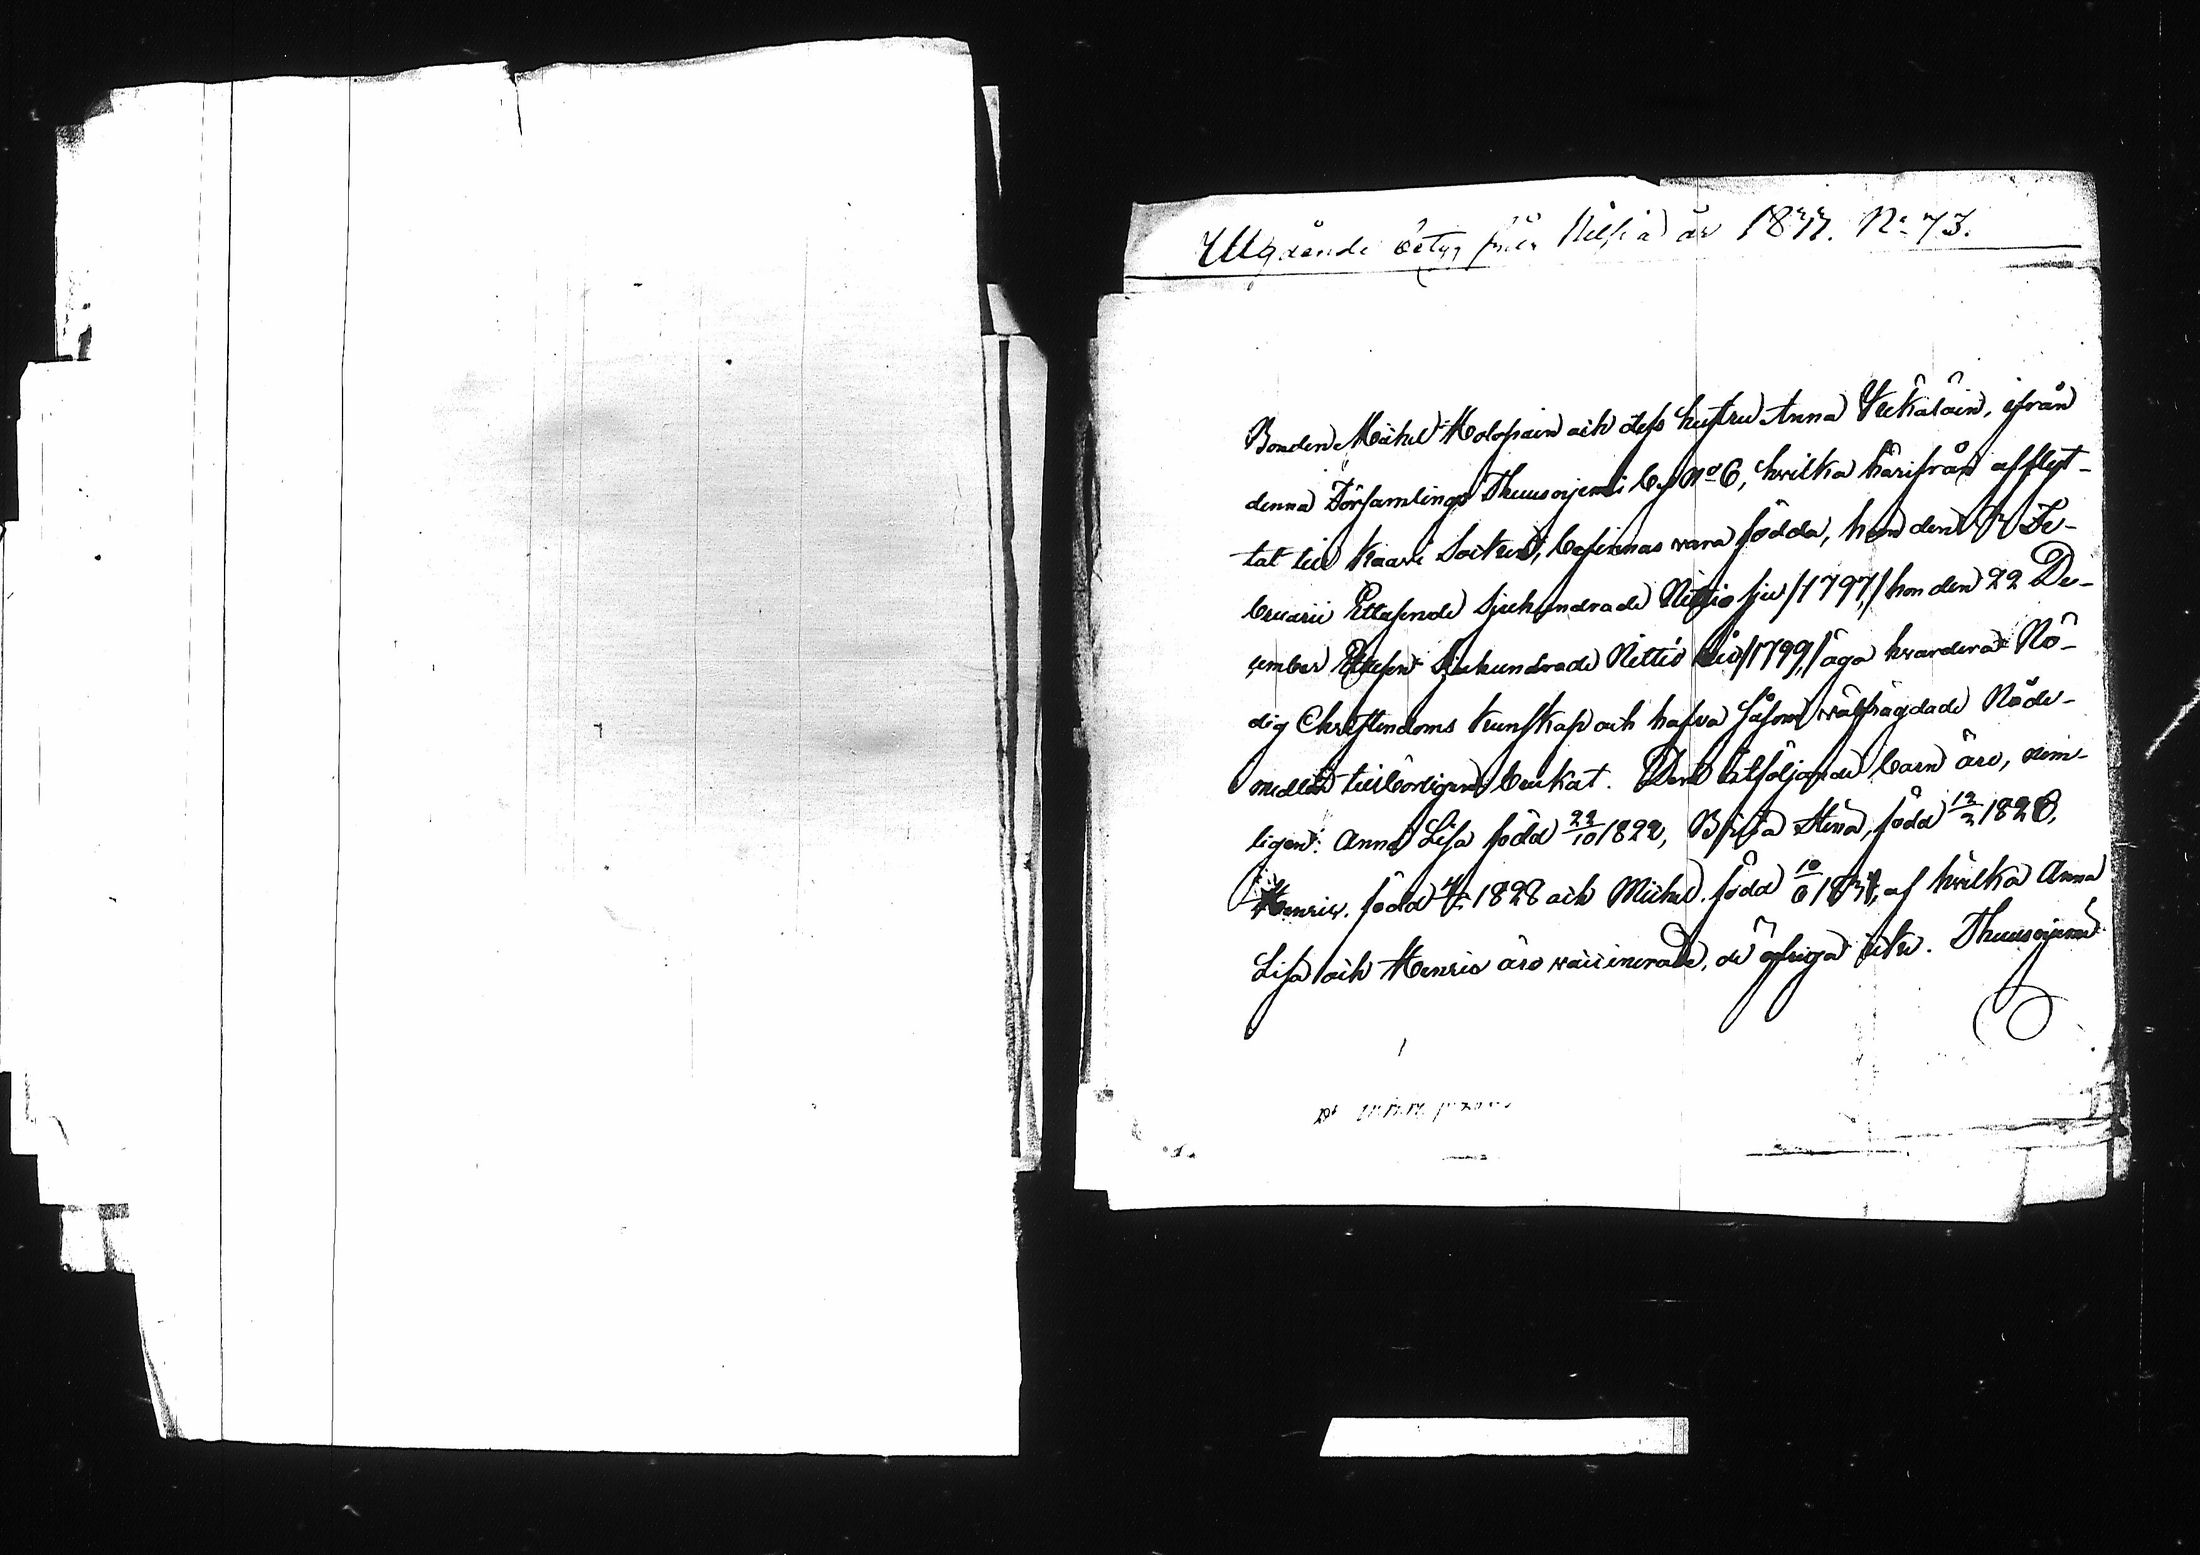 Utgående betyg från Nilsiä år 1833. No 73.
Bonden Michel Holopain och dess hustru Anna Wekäläin, ifrån
denna Församlings Thuusnjemi by No 6, hwilka härifrån afflyt-
tat till Kaavi Socken, befinnas wara födda, han den Fe-
bruarii Ettusende Sjuhundrade Nittio sju /1797,/ hon den 22 De-
cember Ettusen Sjuhundrade Nittio nio /1799,/ äga hvardera Nö-
dig Christendoms kunskap och hafva såsom wälfrägdade Nåde-
medlen tillbörligen brukat. Dem åtföljande barn äro, näm-
ligen: Anna Lisa född 22/10 1822, Brita Stina, född 1826,
Henric. född 1828 och Michel. född af hwilka Anna
Lisa och Henric äro vaccinerade, de öfriga icke. Thuusnjemi